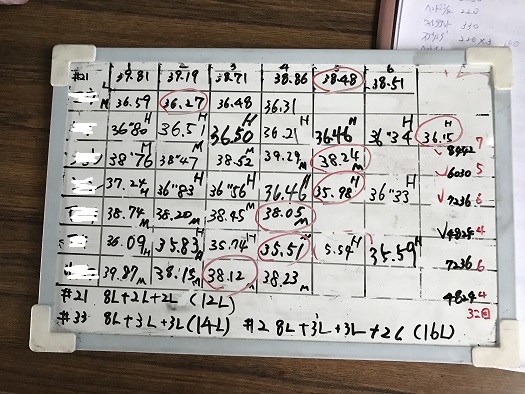 #21 1 2 3 4 5 6
39.81 39.19 38.71 38.86 38.48 38.51
M 36.59 36.27 36.48 36.31
36"80 H 36.51 H 36.50 H 36.21 H 36.46 H 36"34 H 36.15 H 7
38"76 M 38"47 M 38.52 M 39.29 M 38.24 M 6030 5
37.24 H 36"83 H 36"56 H 36.46 H 35.98 H 36"33 H 7236 6
38.74 M 38.20 M 38.45 M 38.05 M 4824 4
36.09 H 35.83 H 35.74 H 35.51 5.54 H 35.59 H 7236 6
39.87 M 38.15 M 38.12 M 38.23 M 4824 4
#21 8L+2L+2L (12L) 32回
#33 8L+3L+3L(14L) #2 8L+3L+3L+2L (16L)